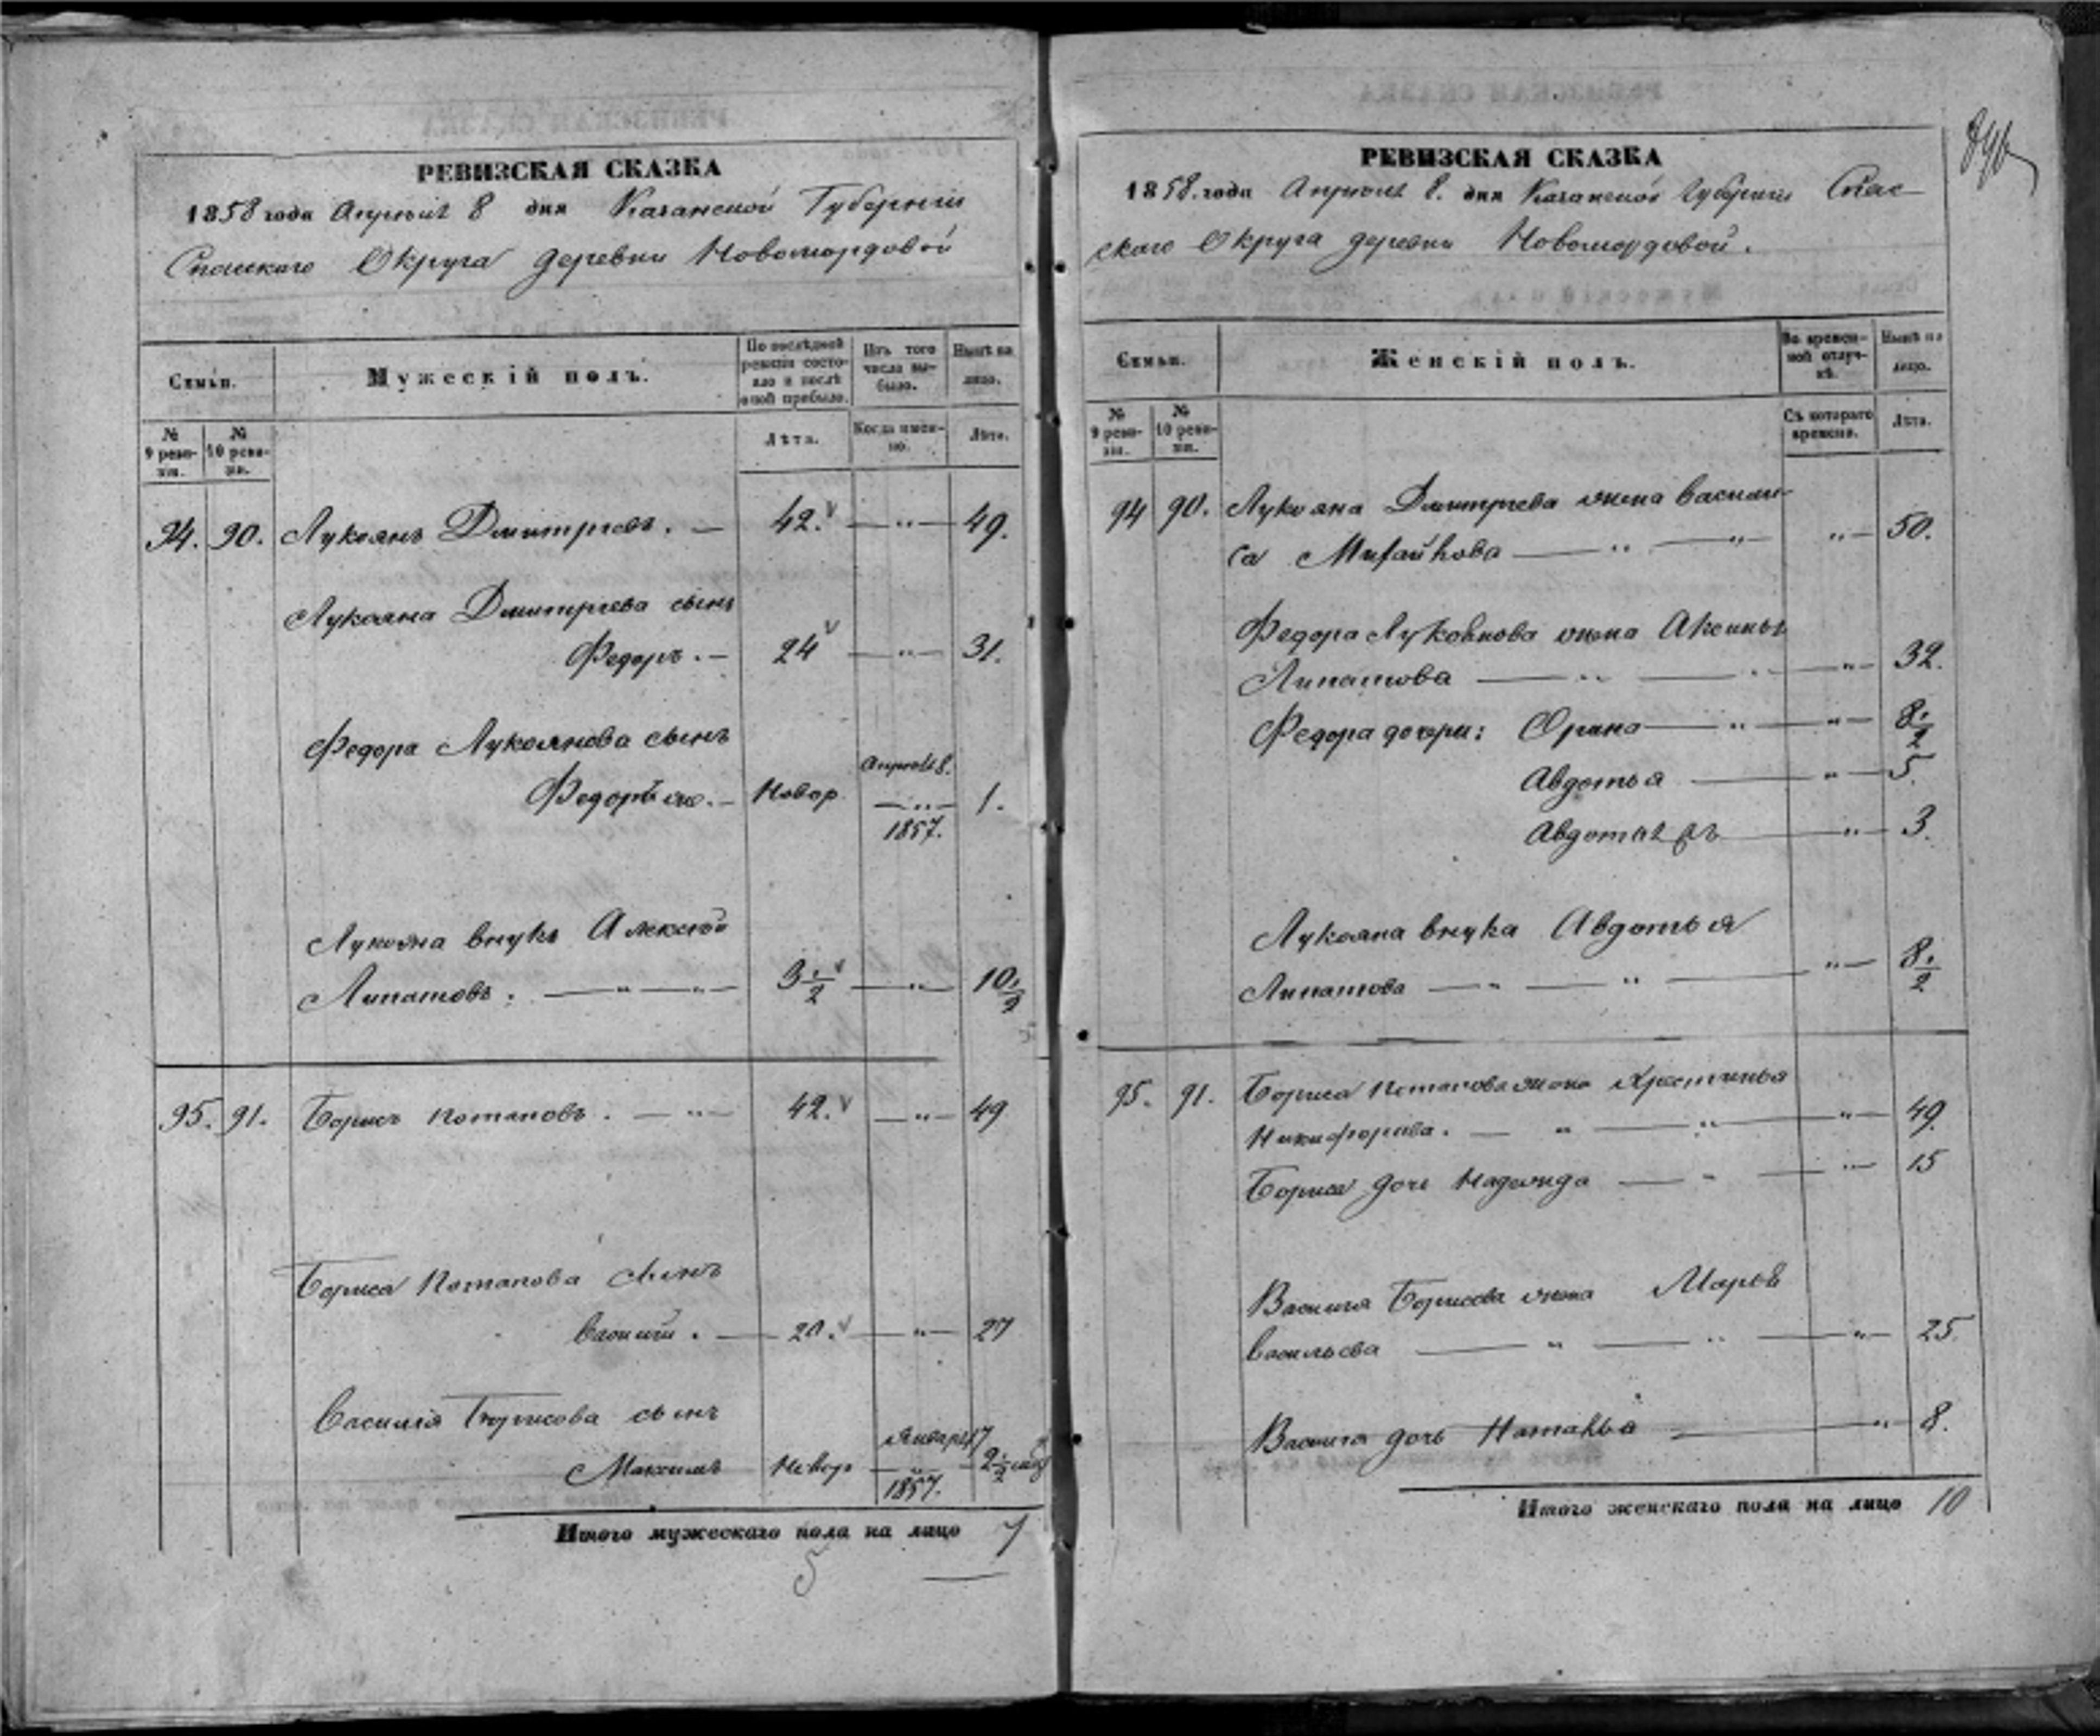 РЕВИЗСКАЯ СКАЗКА
1858 года Апреля 8 дня Казанской Губернiи
Спасскаго Округа деревни Новомордовой
Семьи.
Мужескiй полъ.
По послѣдней ревизiи состояло и послѣ оной прибыло.
Изъ того числа выбыло.
Нынѣ на лицо.
№ 9 ревизiи.
№ 10 ревизiи.
Лѣта.
Когда именно.
Лѣта.
94. 90. Лукоянъ Дмитрiевъ. — 42. — " — 49.
Лукояна Дмитрiева сынъ
Федоръ. — 24 — " — 31.
Федора Лукоянова сынъ
Апреля 8.
Федоръ. — Новор — " — 1.
1857.
Лукояна внукъ Алексѣй
Липатовъ. — " — " — 3 1/2 — " — 10 1/2
95. 91. Борисъ Потаповъ. — " — 42. — " — 49
Бориса Потапова сынъ
Василiй. — 20. — " — 27
Василiя Борисова сынъ
Января 17
Максимъ Новор — " — 2 1/2
1857.
Итого мужескаго пола на лицо 7
5
РЕВИЗСКАЯ СКАЗКА
1858. года Апреля 8. дня Казанской Губернiи Спас-
скаго Округа деревни Новомордовой.
Семьи.
Женскiй полъ.
Во временной отлучкѣ.
Нынѣ на лицо.
№ 9 ревизiи.
№ 10 ревизiи.
Съ котораго времени.
Лѣта.
94 90. Лукояна Дмитрiева жена Васили-
са Михайлова — " — " " — 50.
Федора Лукоянова жена Аксинья
Липатова — " — " — " — 32.
Федора дочери: Орина — " — " — 8 1/2
Авдотья — " — 5.
Авдотья — " — 3.
Лукояна внука Авдотья
Липатова — " — " — " — 8 1/2
95. 91. Бориса Потапова жена Хрестинья
Никифорова. — " — " — " — 49.
Бориса дочь Надежда — " — " — 15
Василiя Борисова жена Марья
Васильева — " — " — " — 25.
Василiя дочь Наталья — " — 8.
Итого женскаго пола на лицо 10